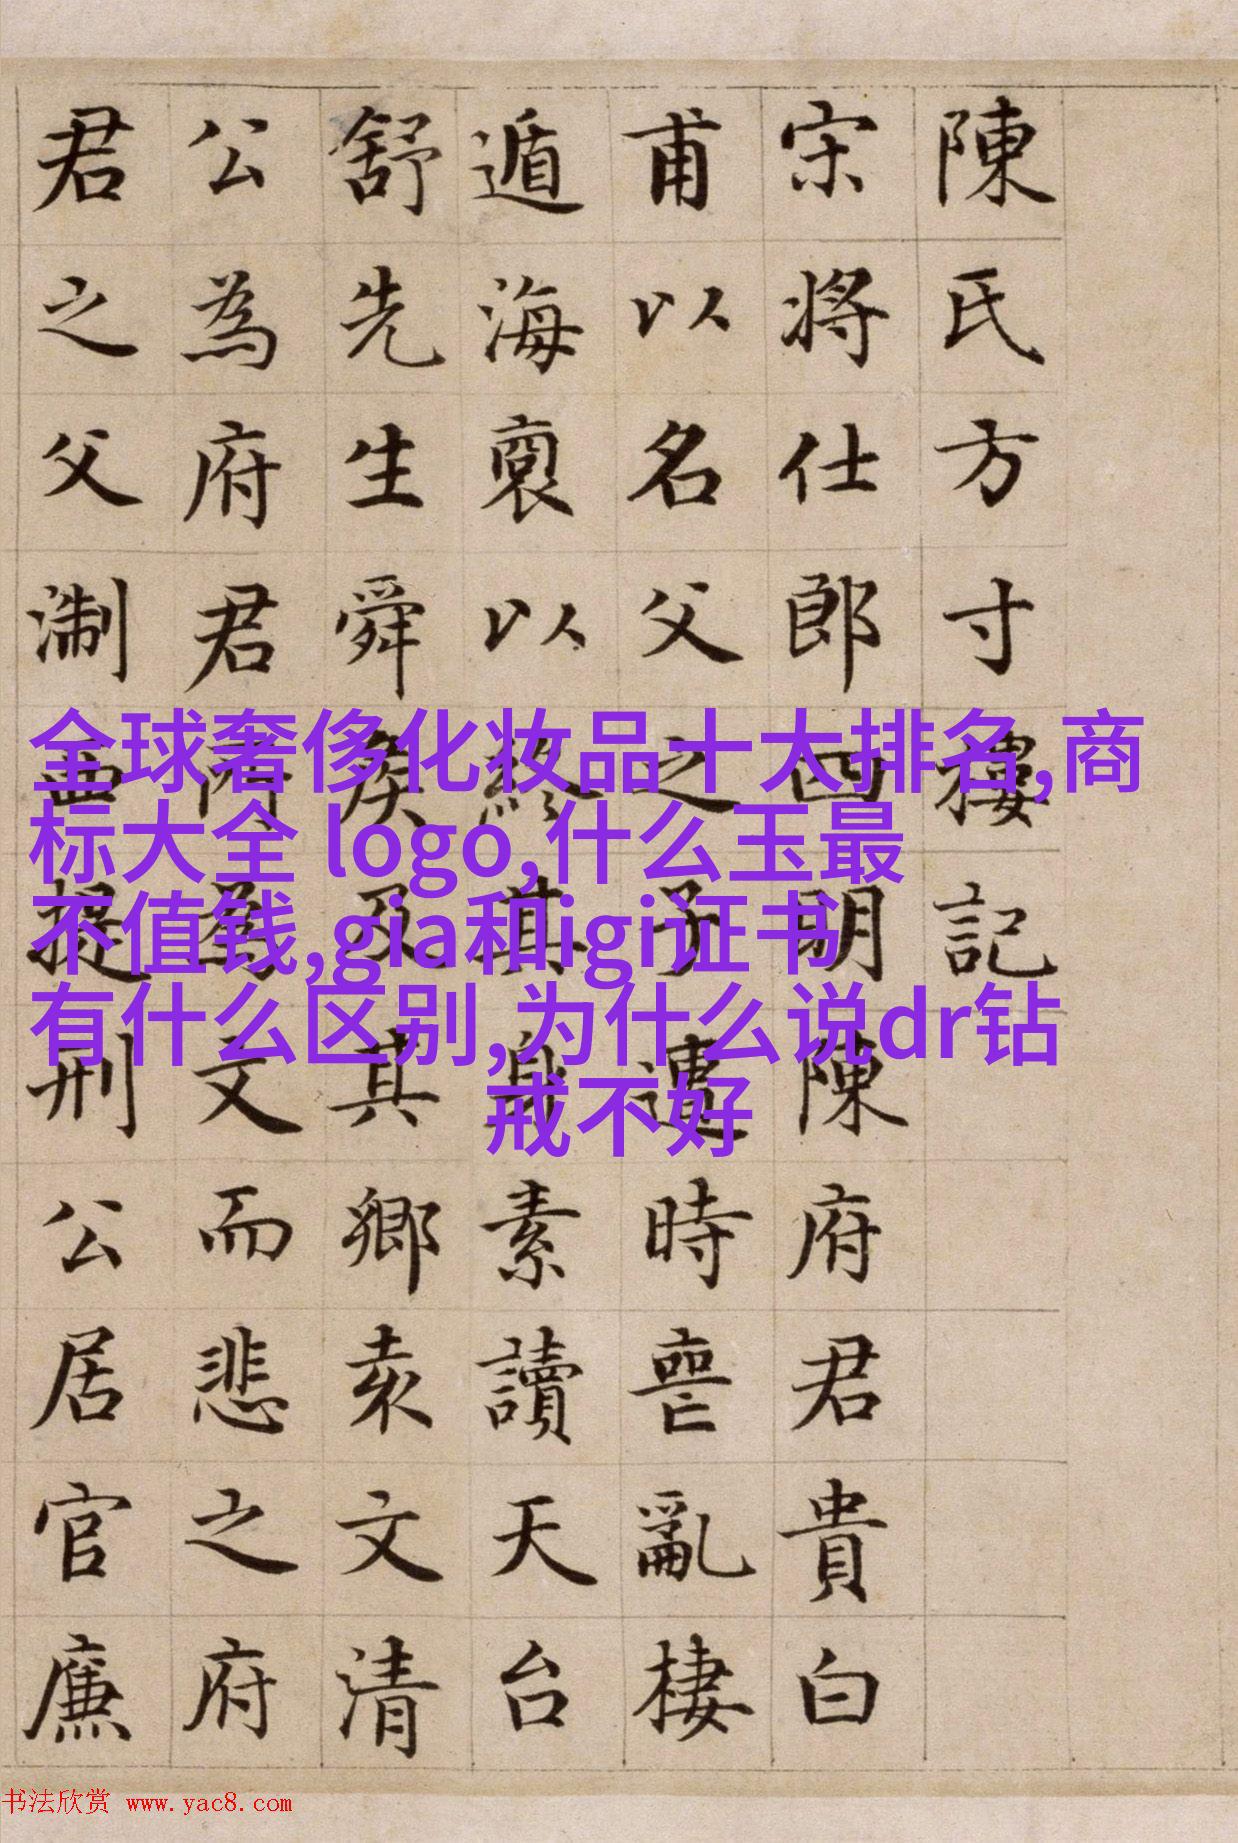 陳氏方寸樓記
宋將仕郎四明陳府君貴白
甫以名父之子遭時喪亂棲
遁海裔以終其身素讀天台
舒先生舜侯及其鄉袁文清
公為府君所為文而悲之府
君之父淛西提刑公居官廉
全球奢侈化妆品十大排名,商
标大全 logo,什么玉最
不值钱,gia和igi证书
有什么区别,为什么说dr钻
戒不好
书法欣赏 www.yac8.com